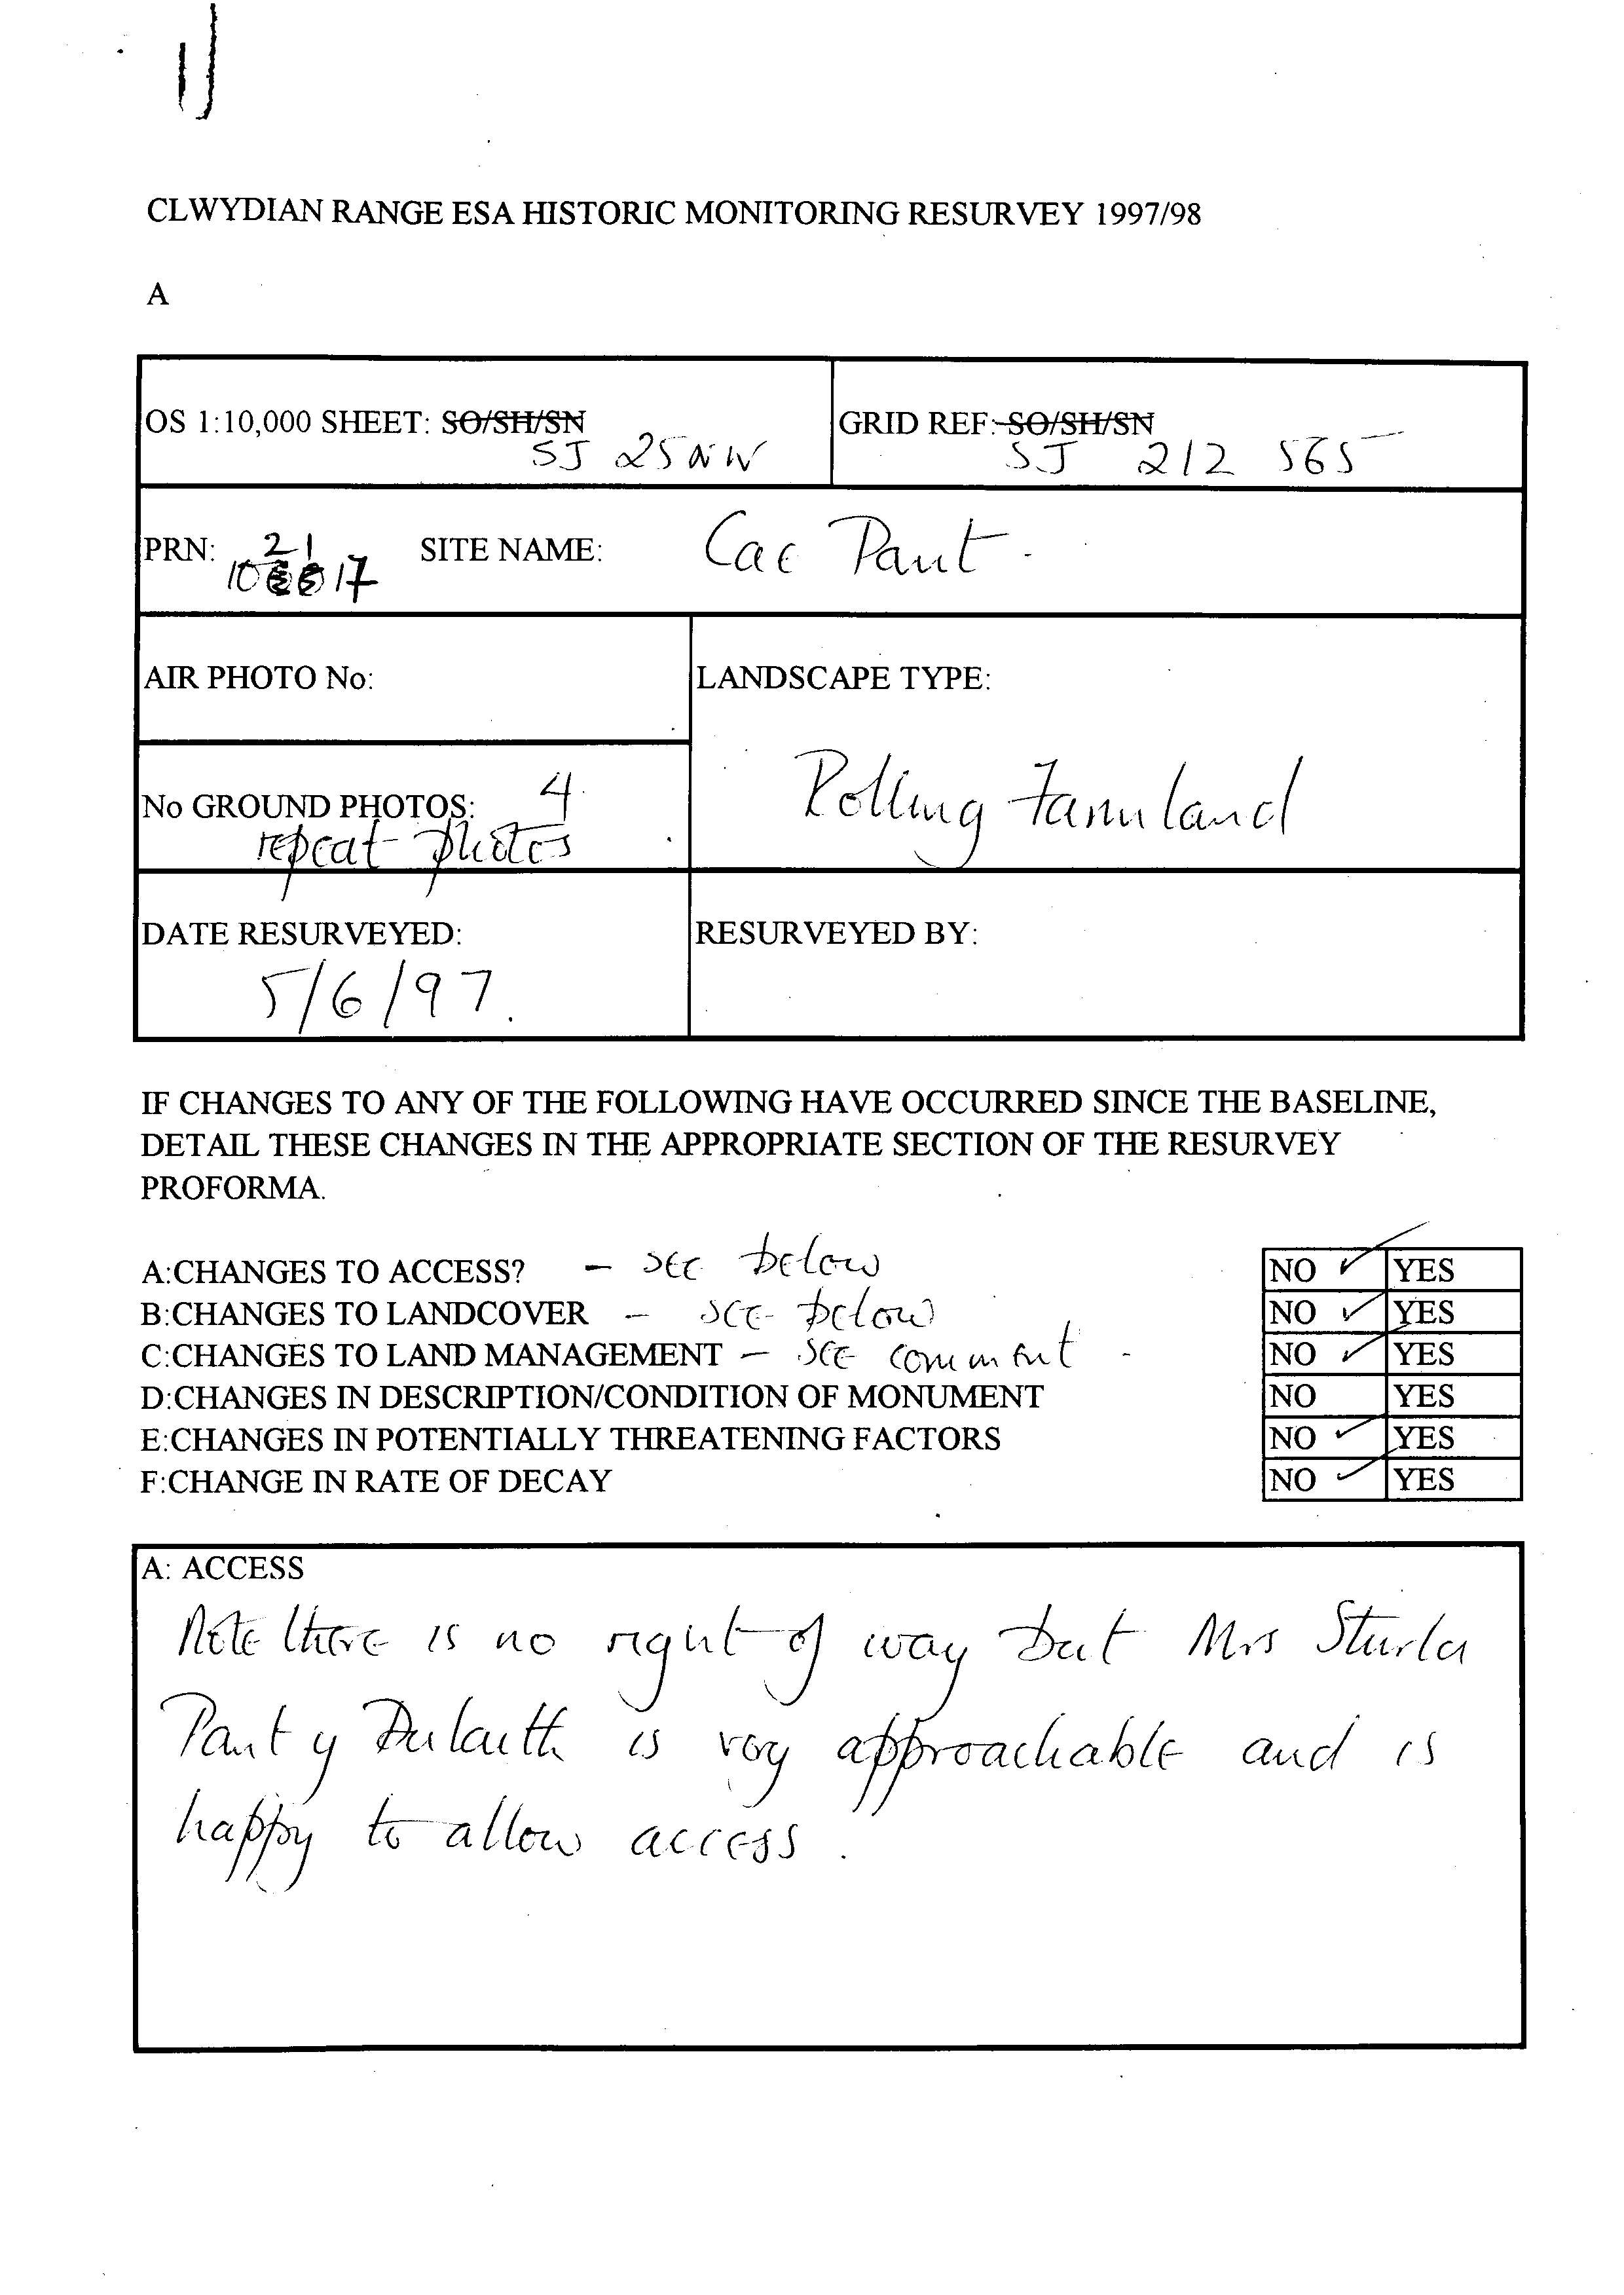 CLWYDIAN RANGE ESA HISTORIC MONITORING RESURVEY 1997/98
A
OS 1:10,000 SHEET: SO/SH/SN
SJ 25NW
GRID REF: SO/SH/SN
SJ 212 565
PRN: 102117
SITE NAME: Cae Pant.
AIR PHOTO No:
LANDSCAPE TYPE:
Rolling Farmland
No GROUND PHOTOS: 4
repeat photos
DATE RESURVEYED:
5/6/97.
RESURVEYED BY:
IF CHANGES TO ANY OF THE FOLLOWING HAVE OCCURRED SINCE THE BASELINE,
DETAIL THESE CHANGES IN THE APPROPRIATE SECTION OF THE RESURVEY
PROFORMA.
A:CHANGES TO ACCESS? – see below NO ✓ YES
B:CHANGES TO LANDCOVER – see below NO ✓ YES
C:CHANGES TO LAND MANAGEMENT – see comment NO ✓ YES
D:CHANGES IN DESCRIPTION/CONDITION OF MONUMENT NO YES
E:CHANGES IN POTENTIALLY THREATENING FACTORS NO ✓ YES
F:CHANGE IN RATE OF DECAY NO ✓ YES
A: ACCESS
Note there is no right of way but Mrs
Pant y is very approachable and is
happy to allow access.